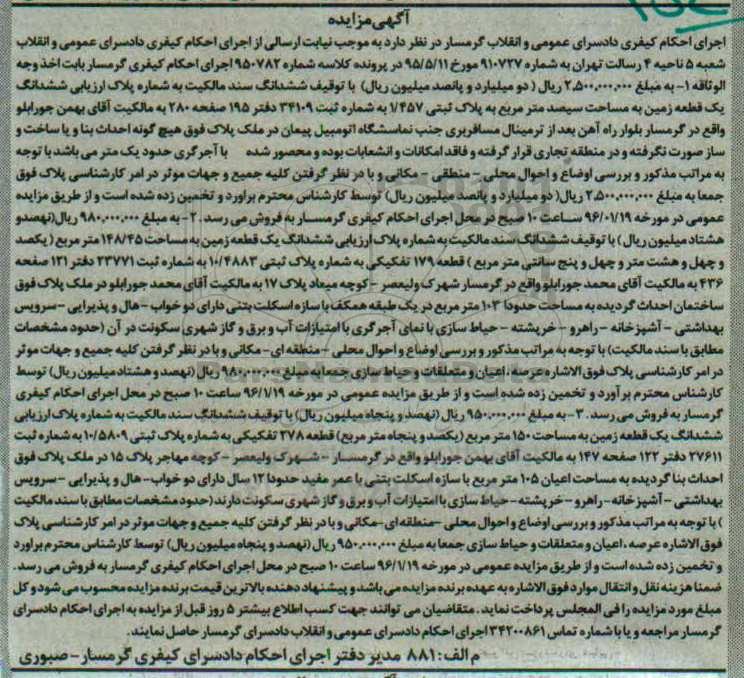 آگهی مزایده
اجرای احکام کیفری دادسرای عمومی و انقلاب گرمسار در نظر دارد به موجب نیابت ارسالی از اجرای احکام کیفری دادسرای عمومی و انقلاب
شعبه ۵ ناحیه ۴ رسالت تهران به شماره ۹۱۰۷۲۷ مورخ ۹۵/۵/۱۱ در پرونده کلاسه شماره ۹۵۰۷۸۲ اجرای احکام کیفری گرمسار بابت اخذ وجه
الوثاقه ۱- به مبلغ ۲,۵۰۰,۰۰۰,۰۰۰ ریال ( دو میلیارد و پانصد میلیون ریال) با توقیف ششدانگ سند مالکیت به شماره پلاک ارزیابی ششدانگ
یک قطعه زمین به مساحت سیصد متر مربع به پلاک ثبتی ۱/۴۵۷ به شماره ثبت ۳۴۱۰۹ دفتر ۱۹۵ صفحه ۲۸۰ به مالکیت آقای بهمن جورابلو
واقع در گرمسار بلوار راه آهن بعد از ترمینال مسافربری جنب نمایشگاه اتومبیل پیمان در ملک پلاک فوق هیچ گونه احداث بنا و یا ساخت و
ساز صورت نگرفته و در منطقه تجاری قرار گرفته و فاقد امکانات و انشعابات بوده و محصور شده با آجرگری حدود یک متر می باشد با توجه
به مراتب مذکور و بررسی اوضاع و احوال محلی - منطقی - مکانی و با در نظر گرفتن کلیه جمیع و جهات موثر در امر کارشناسی پلاک فوق
جمعا به مبلغ ۲,۵۰۰,۰۰۰,۰۰۰ ریال( دو میلیارد و پانصد میلیون ریال) توسط کارشناس محترم براورد و تخمین زده شده است و از طریق مزایده
عمومی در مورخه ۹۶/۰۱/۱۹ ساعت ۱۰ صبح در محل اجرای احکام کیفری گرمسار به فروش می رسد . ۲- به مبلغ ۹۸۰,۰۰۰,۰۰۰ ریال(نهصدو
هشتاد میلیون ریال ) با توقیف ششدانگ سند مالکیت به شماره پلاک ارزیابی ششدانگ یک قطعه زمین به مساحت ۱۴۸/۴۵ متر مربع ( یکصد
و چهل و هشت متر و چهل و پنج سانتی متر مربع ) قطعه ۱۷۹ تفکیکی به شماره پلاک ثبتی ۱۰/۴۸۸۳ به شماره ثبت ۲۳۷۷۱ دفتر ۱۲۱ صفحه
۴۳۶ به مالکیت آقای محمد جورابلو واقع در گرمسار شهرک ولیعصر - کوچه میعاد پلاک ۱۷ به مالکیت آقای محمد جورابلو در ملک پلاک فوق
ساختمان احداث گردیده به مساحت حدودا ۱۰۳ متر مربع در یک طبقه همکف با سازه اسکلت بتنی دارای دو خواب - هال و پذیرایی -سرویس
بهداشتی - آشپزخانه - راهرو - خرپشته - حیاط سازی با نمای آجرگری با امتیازات آب و برق و گاز شهری سکونت در آن (حدود مشخصات
مطابق با سند مالکیت) با توجه به مراتب مذکور و بررسی اوضاع و احوال محلی - منطقه ای - مکانی و با در نظر گرفتن کلیه جمیع و جهات موثر
در امر کارشناسی پلاک فوق الاشاره عرصه ، اعیان و متعلقات و حیاط سازی جمعا به مبلغ ۹۸۰,۰۰۰,۰۰۰ ریال (نهصد و هشتاد میلیون ریال) توسط
کارشناس محترم برآورد و تخمین زده شده است و از طریق مزایده عمومی در مورخه ۹۶/۱/۱۹ ساعت ۱۰ صبح در محل اجرای احکام کیفری
گرمسار به فروش می رسد . ۳- به مبلغ ۹۵۰,۰۰۰,۰۰۰ ریال (نهصد و پنجاه میلیون ریال) با توقیف ششدانگ سند مالکیت به شماره پلاک ارزیابی
ششدانگ یک قطعه زمین به مساحت ۱۵۰ متر مربع (یکصد و پنجاه متر مربع) قطعه ۲۷۸ تفکیکی به شماره پلاک ثبتی ۱۰/۵۸۰۹ به شماره ثبت
۲۷۶۱۱ دفتر ۱۲۲ صفحه ۱۴۷ به مالکیت آقای بهمن جورابلو واقع در گرمسار - شهرک ولیعصر - کوچه مهاجر پلاک ۱۵ در ملک پلاک فوق
احداث بنا گردیده به مساحت اعیان ۱۰۵ متر مربع با سازه اسکلت بتنی با عمر مفید حدودا ۱۲ سال دارای دو خواب - هال و پذیرایی - سرویس
بهداشتی - آشپزخانه - راهرو - خرپشته - حیاط سازی با امتیازات آب و برق و گاز شهری سکونت دارند (حدود مشخصات مطابق با سند مالکیت
) با توجه به مراتب مذکور و بررسی اوضاع و احوال محلی -منطقه ای-مکانی و با در نظر گرفتن کلیه جمیع و جهات موثر در امر کارشناسی پلاک
فوق الاشاره عرصه ، اعیان و متعلقات و حیاط سازی جمعا به مبلغ ۹۵۰,۰۰۰,۰۰۰ ریال (نهصد و پنجاه میلیون ریال) توسط کارشناس محترم براورد
و تخمین زده شده است و از طریق مزایده عمومی در مورخه ۹۶/۱/۱۹ ساعت ۱۰ صبح در محل اجرای احکام کیفری گرمسار به فروش می رسد .
ضمنا هزینه نقل و انتقال موارد فوق الاشاره به عهده برنده مزایده می باشد و پیشنهاد دهنده بالاترین قیمت برنده مزایده محسوب می شود و کل
مبلغ مورد مزایده را فی المجلس پرداخت نماید . متقاضیان می توانند جهت کسب اطلاع بیشتر ۵ روز قبل از مزایده به اجرای احکام دادسرای
گرمسار مراجعه و یا با شماره تماس ۳۴۲۰۰۸۶۱ اجرای احکام دادسرای عمومی و انقلاب دادسرای گرمسار حاصل نمایند.
م الف: ۸۸۱ مدیر دفتر اجرای احکام دادسرای کیفری گرمسار - صبوری